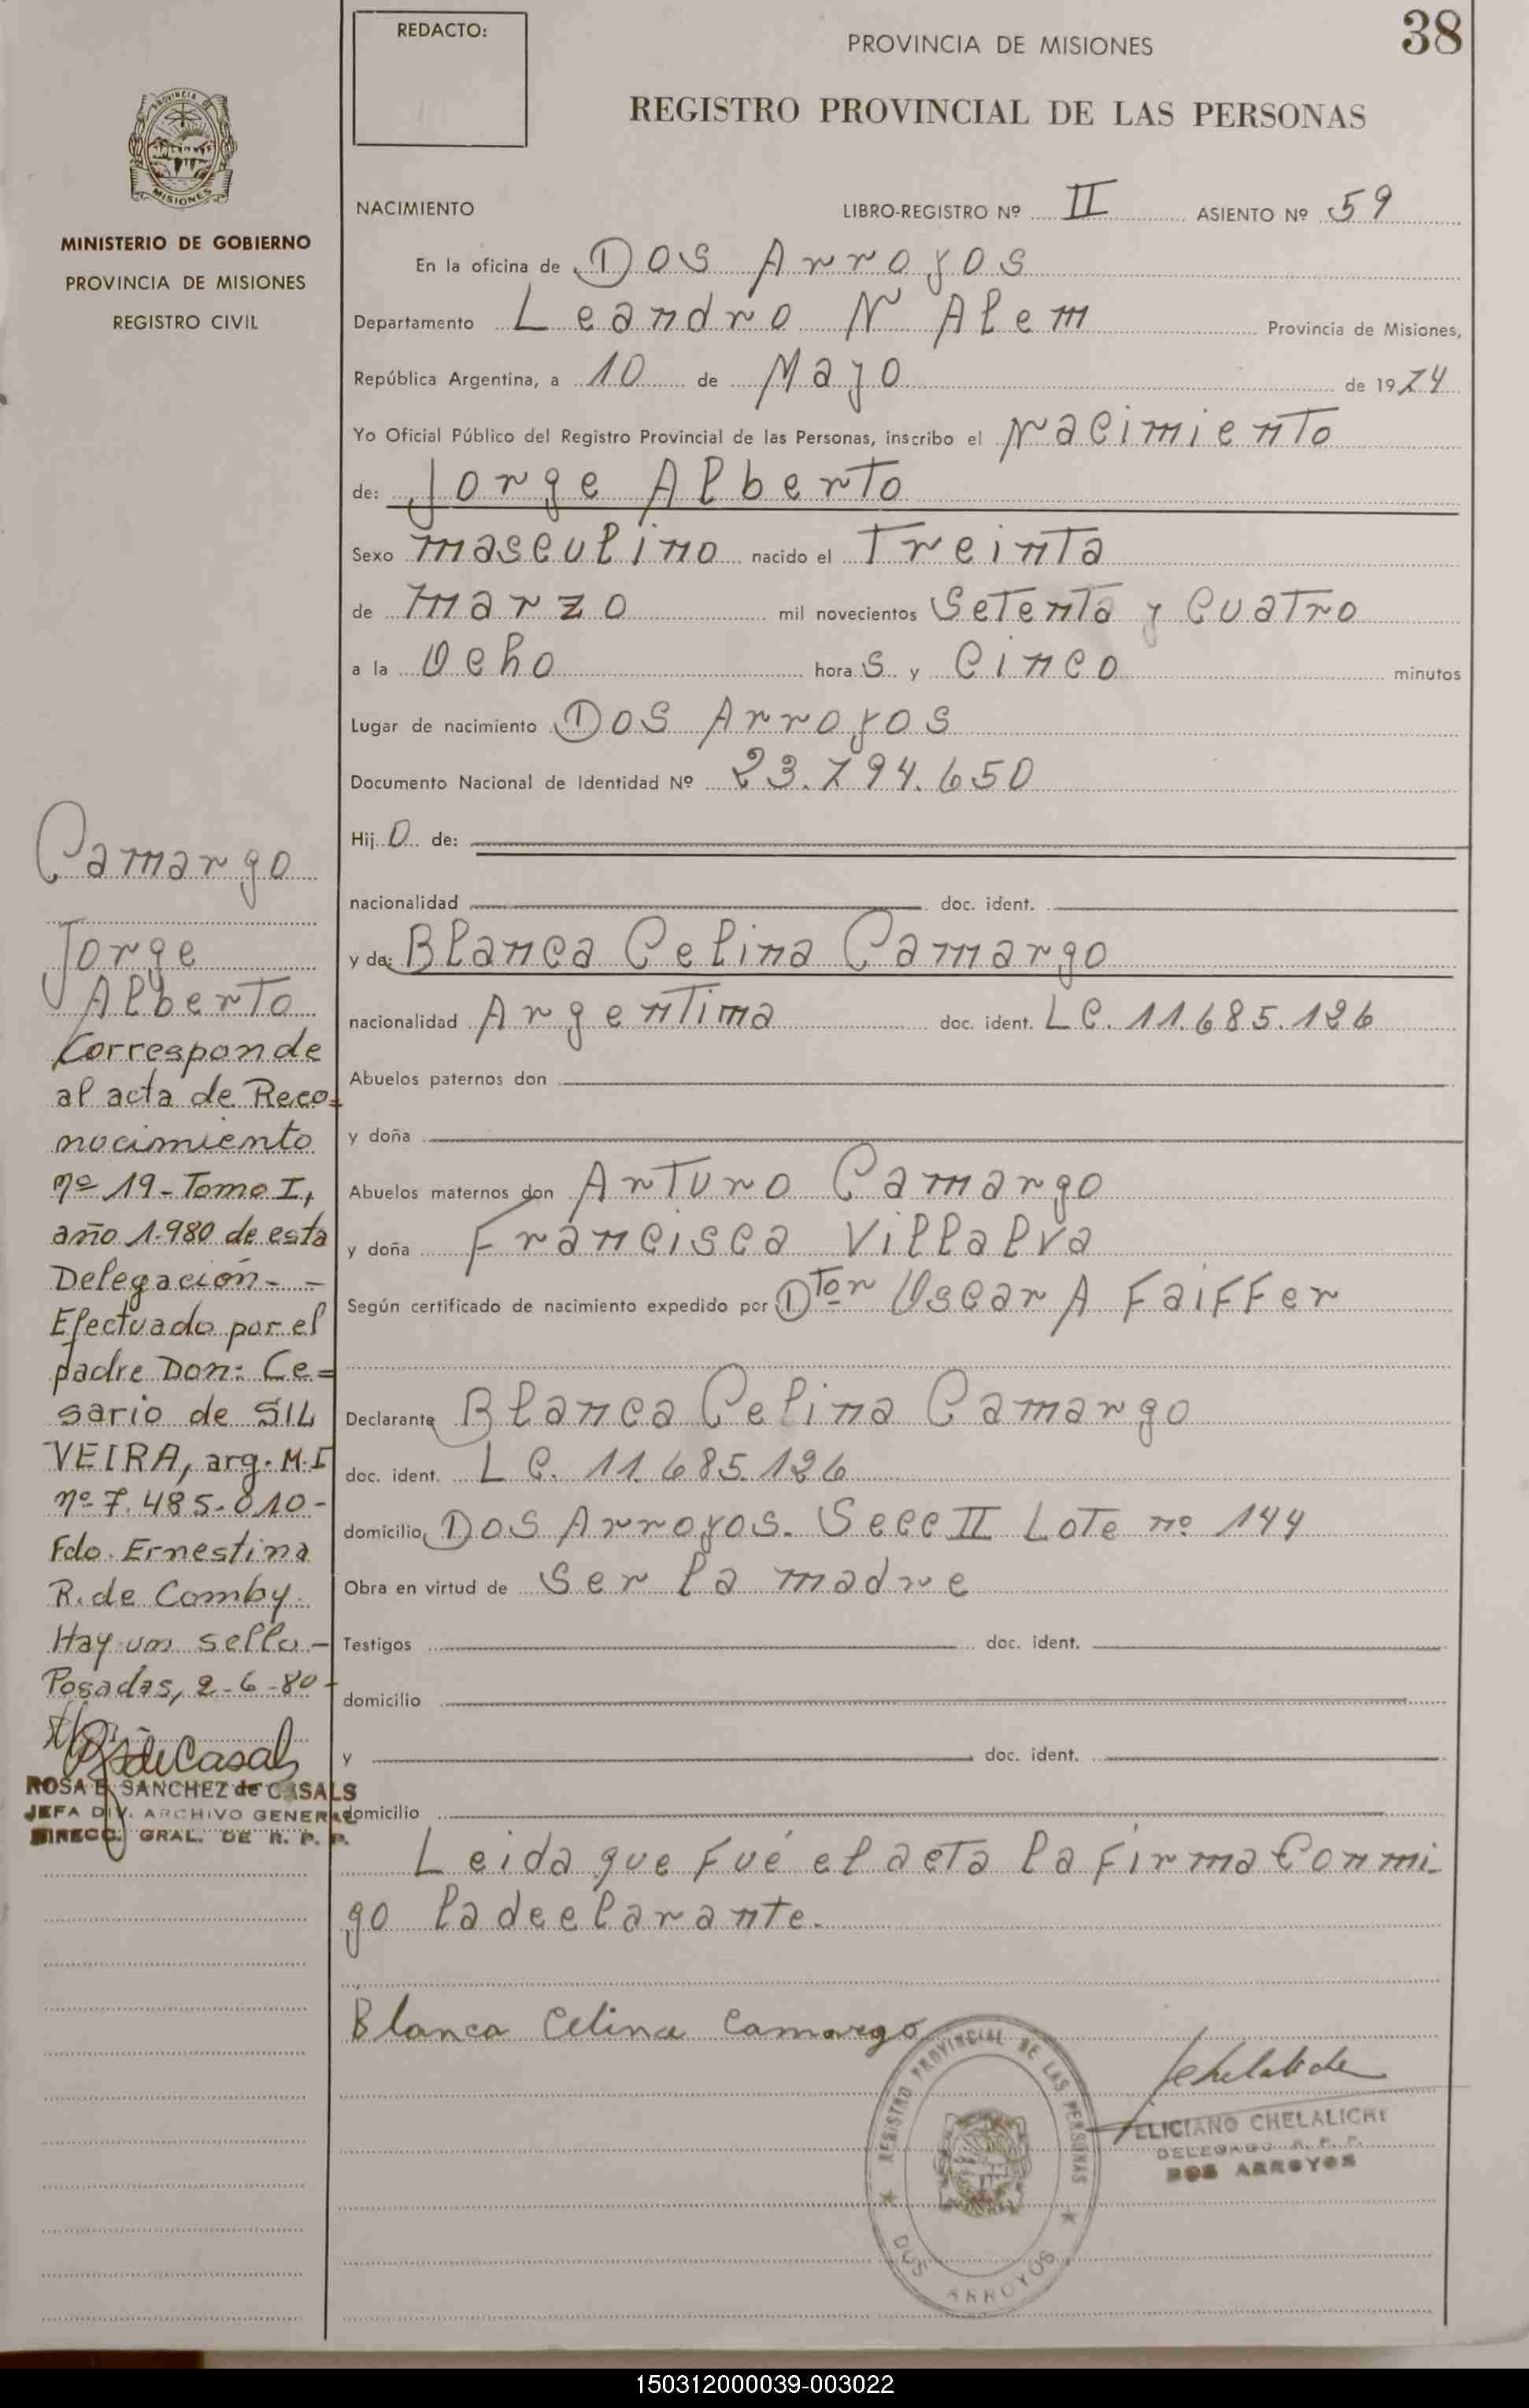 REDACTO:
PROVINCIA DE MISIONES
38
REGISTRO PROVINCIAL DE LAS PERSONAS
PROVINCIA DE
MISIONES
MINISTERIO DE GOBIERNO
PROVINCIA DE MISIONES
REGISTRO CIVIL
NACIMIENTO LIBRO-REGISTRO Nº II ASIENTO Nº 59
En la oficina de Dos Arroyos
Departamento Leandro N Alem Provincia de Misiones,
República Argentina, a 10 de Mayo de 1974
Yo Oficial Público del Registro Provincial de las Personas, inscribo el Nacimiento
de: Jorge Alberto
Sexo masculino nacido el Treinta
de marzo mil novecientos Setenta y Cuatro
a la Ocho horas y Cinco minutos
Lugar de nacimiento Dos Arroyos
Documento Nacional de Identidad Nº 23.794.650
Hijo de:
nacionalidad doc. ident.
y de: Blanca Celina Camargo
nacionalidad Argentina doc. ident. LC. 11.685.126
Abuelos paternos don
y doña
Abuelos maternos don Arturo Camargo
y doña Francisca Villalva
Según certificado de nacimiento expedido por Dtor Oscar A Faiffer
Declarante Blanca Celina Camargo
doc. ident. L C. 11.685.126
domicilio Dos Arroyos. Secc II Lote nº 144
Obra en virtud de Ser la madre
Testigos doc. ident.
domicilio
y doc. ident.
domicilio
Leida que fué el acta la firma Conmi-
go la declarante.
Blanca Celina Camargo
REGISTRO PROVINCIAL DE LAS PERSONAS
DOS ARROYOS
FELICIANO CHELALICHE
DELEGADO R. P. P.
DOS ARROYOS
Camargo
Jorge
Alberto
Corresponde
al acta de Reco-
nocimiento
nº 19-Tomo I,
año 1.980 de esta
Delegación.-
Efectuado por el
padre Don: Ce=
sario de SIL
VEIRA, arg. M.I
nº 7.485.010-
Fdo. Ernestina
R. de Comby.
Hay un sello.-
Posadas, 2-6-80-
ROSA E. SANCHEZ de CASALS
JEFA DIV. ARCHIVO GENERAL
DIRECC. GRAL. DE R. P. P.
150312000039-003022